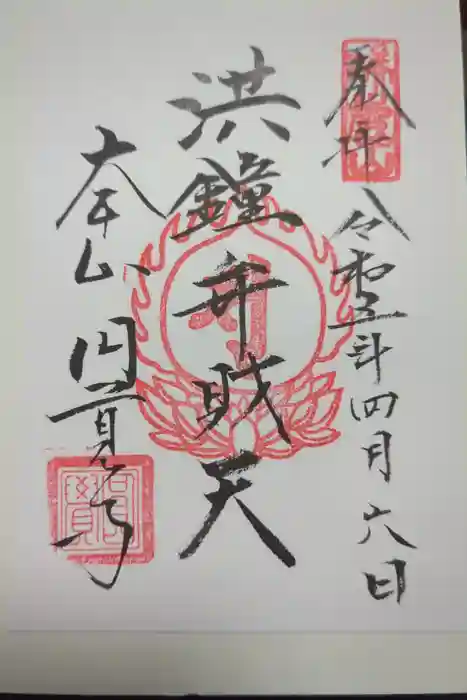 奉拝
令和五年四月六日
洪鐘弁財天
大本山
円覚寺